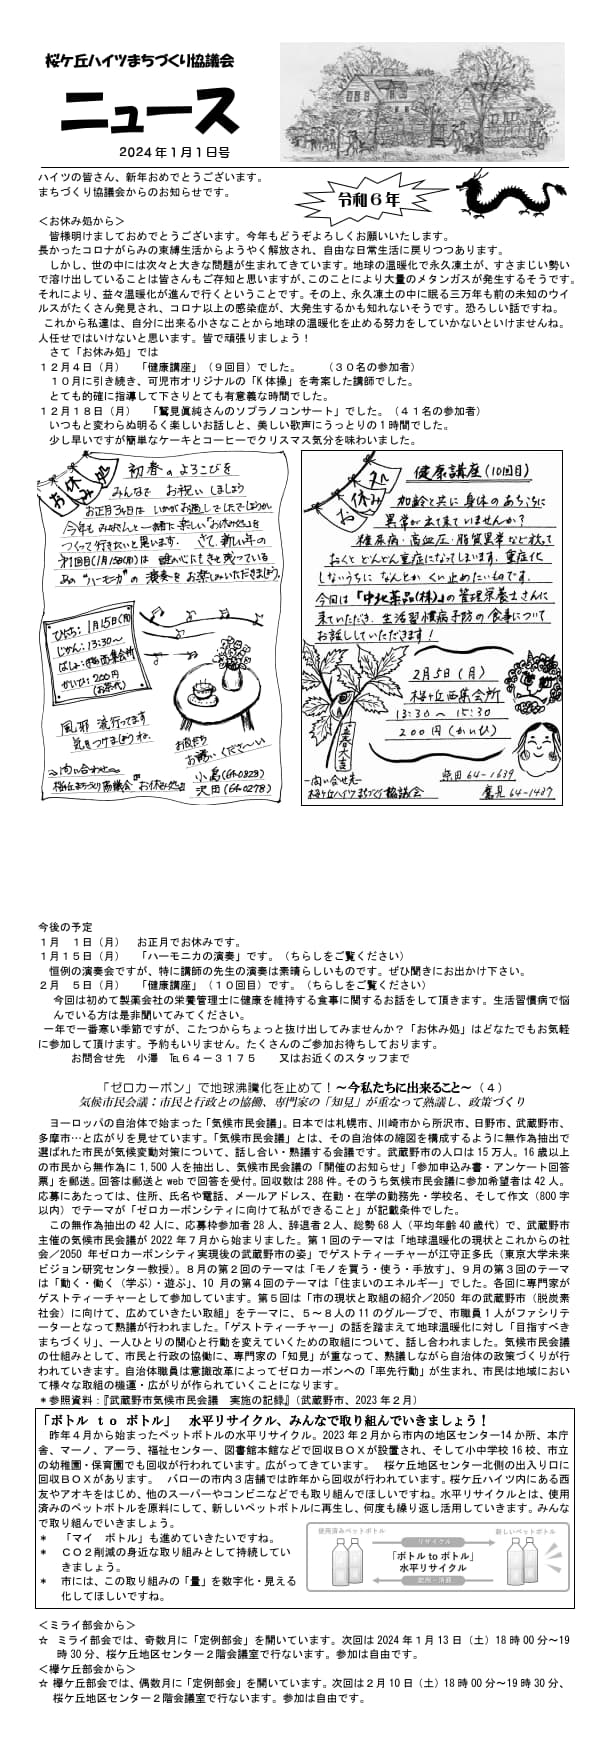 桜ケ丘ハイツまちづくり協議会
ニュース
2024年1月1日号
ハイツの皆さん、新年おめでとうございます。
まちづくり協議会からのお知らせです。
令和6年
<お休み処から>
皆様明けましておめでとうございます。今年もどうぞよろしくお願いいたします。
長かったコロナがらみの束縛生活からようやく解放され、自由な日常生活に戻りつつあります。
しかし、世の中には次々と大きな問題が生まれてきています。地球の温暖化で永久凍土が、すさまじい勢い
で溶け出していることは皆さんもご存知と思いますが、このことにより大量のメタンガスが発生するそうです。
それにより、益々温暖化が進んで行くということです。その上、永久凍土の中に眠る三万年も前の未知のウイ
ルスがたくさん発見され、コロナ以上の感染症が、大発生するかも知れないそうです。恐ろしい話ですね。
これから私達は、自分に出来る小さなことから地球の温暖化を止める努力をしていかないといけませんね。
人任せではいけないと思います。皆で頑張りましょう!
さて「お休み処」では
12月4日(月) 「健康講座」(9回目)でした。 (30名の参加者)
10月に引き続き、可児市オリジナルの「K体操」を考案した講師でした。
とても的確に指導して下さりとても有意義な時間でした。
12月18日(月) 「鷲見眞純さんのソプラノコンサート」でした。(41名の参加者)
いつもと変わらぬ明るく楽しいお話しと、美しい歌声にうっとりの1時間でした。
少し早いですが簡単なケーキとコーヒーでクリスマス気分を味わいました。
お休み処
初春のよろこびを
みんなで お祝いしましょう
お正月三が日は いかがお過しでしたでしょうか
今年も みなさんと一緒に楽しい"お休み処"を
つくって行きたいと思います. さて、新しい年の
第1回目(1月15日(月))は
あの "ハーモニカ" の 演奏を お楽しみいただきましょう!
ひにち: 1月15日(月)
じかん: 13:30~
ばしょ: 桜ヶ丘西集会所
かいひ: 200円
(お茶代)
風邪 流行ってます
気をつけましょうね.
お友だち
お誘いくださ~い
~問い合わせ~
桜ヶ丘まちづくり協議会 "お休み処"
小島(64-0828)
沢田(64-0278)
お休み処
健康講座(10回目)
加齢と共に 身体のあちこちに
異常が出て来ていませんか?
糖尿病・高血圧・脂質異常など放って
おくと どんどん重症になってしまいます. 重症化
しないうちに なんとか くい止めたいものです.
今回は「中北薬品(株)」の管理栄養士さんに
来ていただき、生活習慣病予防の食事について
お話ししていただきます!
2月5日(月)
桜ヶ丘西集会所
13:30 ~ 15:30
200円(かいひ)
立春大吉
-問い合せ先-
桜ヶ丘ハイツまちづくり協議会
柴田 64-1639
鷲見 64-1437
今後の予定
1月 1日(月) お正月でお休みです。
1月15日(月) 「ハーモニカの演奏」です。(ちらしをご覧ください)
恒例の演奏会ですが、特に講師の先生の演奏は素晴らしいものです。ぜひ聞きにお出かけ下さい。
2月 5日(月) 「健康講座」(10回目)です。(ちらしをご覧ください)
今回は初めて製薬会社の栄養管理士に健康を維持する食事に関するお話をして頂きます。生活習慣病で悩
んでいる方は是非聞いてみてください。
一年で一番寒い季節ですが、こたつからちょっと抜け出してみませんか?「お休み処」はどなたでもお気軽
に参加して頂けます。予約もいりません。たくさんのご参加お待ちしております。
お問合せ先 小澤 ℡64-3175 又はお近くのスタッフまで
「ゼロカーボン」で地球沸騰化を止めて!~今私たちに出来ること~(4)
気候市民会議:市民と行政との協働、専門家の「知見」が重なって熟議し、政策づくり
ヨーロッパの自治体で始まった「気候市民会議」。日本では札幌市、川崎市から所沢市、日野市、武蔵野市、
多摩市…と広がりを見せています。「気候市民会議」とは、その自治体の縮図を構成するように無作為抽出で
選ばれた市民が気候変動対策について、話し合い・熟議する会議です。武蔵野市の人口は15万人。16歳以上
の市民から無作為に1,500人を抽出し、気候市民会議の「開催のお知らせ」「参加申込み書・アンケート回答
票」を郵送。回答は郵送とwebで回答を受付。回収数は288件。そのうち気候市民会議に参加希望者は42人。
応募にあたっては、住所、氏名や電話、メールアドレス、在勤・在学の勤務先・学校名、そして作文(800字
以内)でテーマが「ゼロカーボンシティに向けて私ができること」が記載条件でした。
この無作為抽出の42人に、応募枠参加者28人、辞退者2人、総勢68人(平均年齢40歳代)で、武蔵野市
主催の気候市民会議が2022年7月から始まりました。第1回のテーマは「地球温暖化の現状とこれからの社
会/2050年ゼロカーボンシティ実現後の武蔵野市の姿」でゲストティーチャーが江守正多氏(東京大学未来
ビジョン研究センター教授)。8月の第2回のテーマは「モノを買う・使う・手放す」、9月の第3回のテーマ
は「動く・働く(学ぶ)・遊ぶ」、10月の第4回のテーマは「住まいのエネルギー」でした。各回に専門家が
ゲストティーチャーとして参加しています。第5回は「市の現状と取組の紹介/2050年の武蔵野市(脱炭素
社会)に向けて、広めていきたい取組」をテーマに、5~8人の11のグループで、市職員1人がファシリテ
ーターとなって熟議が行われました。「ゲストティーチャー」の話を踏まえて地球温暖化に対し「目指すべき
まちづくり」、一人ひとりの関心と行動を変えていくための取組について、話し合われました。気候市民会議
の仕組みとして、市民と行政の協働に、専門家の「知見」が重なって、熟議しながら自治体の政策づくりが行
われていきます。自治体職員は意識改革によってゼロカーボンへの「率先行動」が生まれ、市民は地域におい
て様々な取組の機運・広がりが作られていくことになります。
*参照資料:『武蔵野市気候市民会議 実施の記録』(武蔵野市、2023年2月)
「ボトル to ボトル」 水平リサイクル、みんなで取り組んでいきましょう!
昨年4月から始まったペットボトルの水平リサイクル。2023年2月から市内の地区センター14か所、本庁
舎、マーノ、アーラ、福祉センター、図書館本館などで回収BOXが設置され、そして小中学校16校、市立
の幼稚園・保育園でも回収が行われています。広がってきています。 桜ケ丘地区センター北側の出入り口に
回収BOXがあります。 バローの市内3店舗では昨年から回収が行われています。桜ケ丘ハイツ内にある西
友やアオキをはじめ、他のスーパーやコンビニなどでも取り組んでほしいですね。水平リサイクルとは、使用
済みのペットボトルを原料にして、新しいペットボトルに再生し、何度も繰り返し活用していきます。みんな
で取り組んでいきましょう。
* 「マイ ボトル」も進めていきたいですね。
* CO2削減の身近な取り組みとして持続してい
きましょう。
* 市には、この取り組みの「量」を数字化・見える
化してほしいですね。
使用済みペットボトル
新しいペットボトル
リサイクル
「ボトル to ボトル」
水平リサイクル
飲用・消費
<ミライ部会から>
☆ ミライ部会では、奇数月に「定例部会」を開いています。次回は2024年1月13日(土)18時00分~19
時30分、桜ケ丘地区センター2階会議室で行ないます。参加は自由です。
<欅ケ丘部会から>
☆ 欅ケ丘部会では、偶数月に「定例部会」を開いています。次回は2月10日(土)18時00分~19時30分、
桜ケ丘地区センター2階会議室で行ないます。参加は自由です。